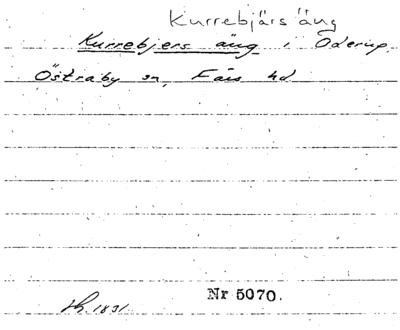 Kurrebjärs äng
Kurrebjers äng i Oderup,
Östraby sn, Färs hd
Sk. 1831.
Nr 5070.